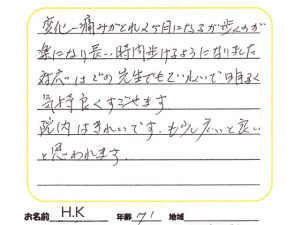 変化ー痛みがとれ2ヶ月になるが歩くのが
楽になり長い時間歩けるようになりました
対応はどの先生でもていねいで明るく
気持良くすごせます
院内はきれいです。もう少し広いと良い
と思われます。
お名前 H.K 年齢 71 地域